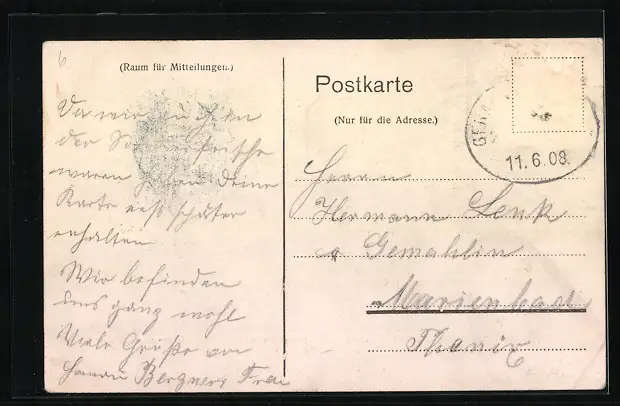 6
(Raum für Mitteilungen.)
Da wir auch in
der Sommerfrische
waren haben Deine
Karte erst später
erhalten
Wir befinden
uns ganz wohl
Viele Grüße von
Bergners Frau
Postkarte
(Nur für die Adresse.)
11.6.08.
Herrn
Hermann Lenk
Gemahlin
Marienbad